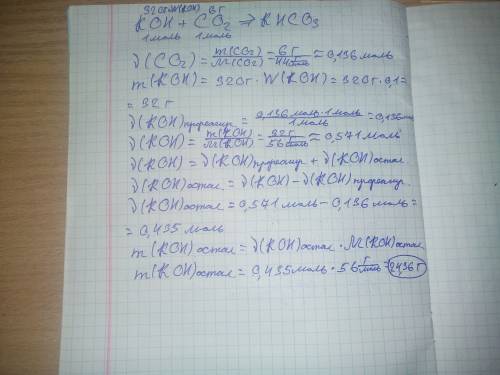 320г·W(KOH) 6г
KOH + CO₂ ⇒ KHCO₃
1моль 1моль
ν(CO₂) = m(CO₂)/M(CO₂) = 6г/44г/моль ≈ 0,136 моль
m(KOH) = 320г · W(KOH) = 320г · 0,1 =
= 32 г
ν(KOH)прореагир = 0,136 моль · 1 моль/1 моль = 0,136 моль
ν(KOH) = m(KOH)/M(KOH) = 32г/56г/моль ≈ 0,571 моль
ν(KOH) = ν(KOH)прореагир + ν(KOH)остал
ν(KOH)остал = ν(KOH) − ν(KOH)прореагир.
ν(KOH)остал = 0,571 моль − 0,136 моль =
= 0,435 моль
m(KOH)остал = ν(KOH)остал · M(KOH)остал
m(KOH)остал = 0,435 моль · 56 г/моль = 2436 г